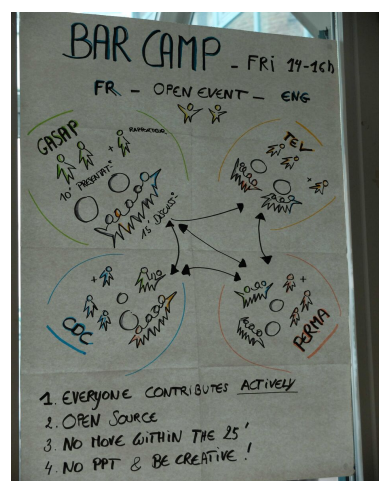 BAR CAMP - FRI 14-16h
FR - OPEN EVENT - ENG
GASAP
+
RAPPORTEUR
TEV
+
10' PRESENTAT°
15' DISCUSS°
+
COC
+
PERMA
1. EVERYONE CONTRIBUTES ACTIVELY
2. OPEN SOURCE
3. NO MOVE WITHIN THE 25'
4. NO PPT & BE CREATIVE !